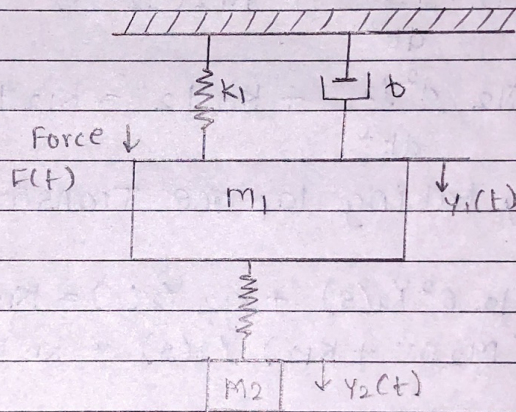 K1
b
Force ↓
F(t)
M1
↓ y1(t)
M2
↓ y2(t)